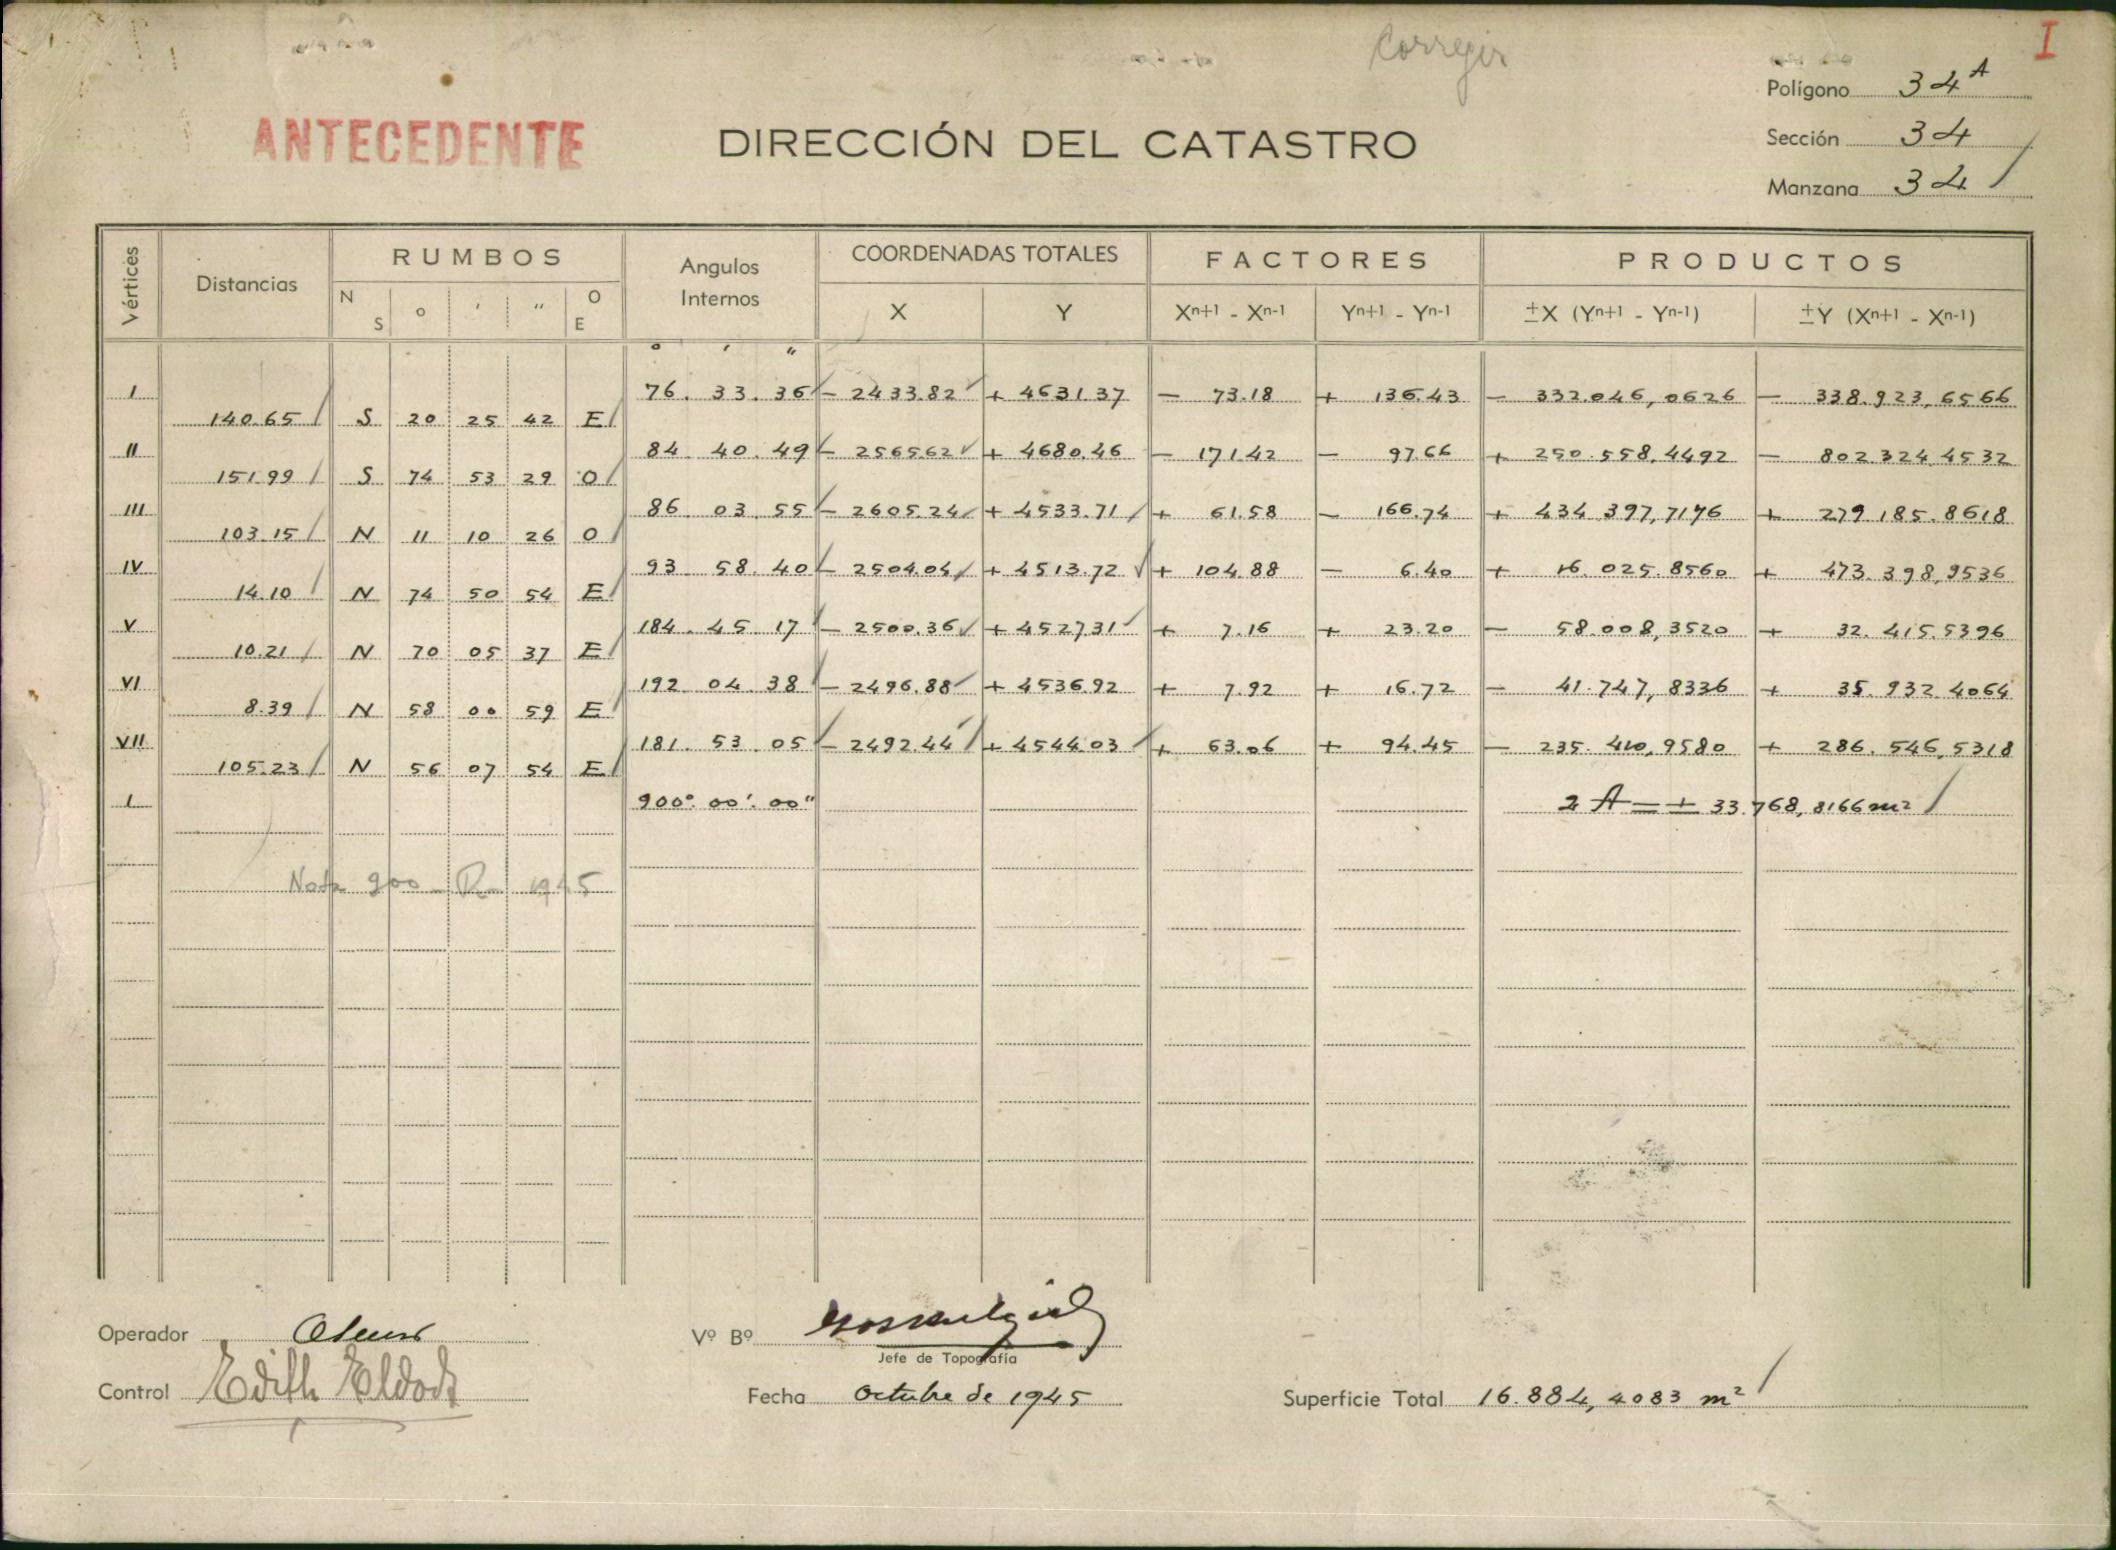 Corregir
I
Polígono 34 A
ANTECEDENTE
DIRECCIÓN DEL CATASTRO
Sección 34
Manzana 34
Vértices Distancias RUMBOS Angulos Internos COORDENADAS TOTALES FACTORES PRODUCTOS
N S o ' " O E X Y Xn+1 - Xn-1 Yn+1 - Yn-1 ±X (Yn+1 - Yn-1) ±Y (Xn+1 - Xn-1)
o ' "
I 76. 33. 36 - 2433.82 + 4631.37 - 73.18 + 136.43 - 332.046,0626 - 338.923,6566
140.65 S 20 25 42 E
II 84 40. 49 - 2565.62 + 4680.46 - 171.42 - 97.66 + 250.558,4492 - 802.324,4532
151.99 S 74 53 29 O
III 86 03 55 - 2605.24 + 4533.71 + 61.58 - 166.74 + 434.397,7176 + 279.185.8618
103.15 N 11 10 26 O
IV 93 58. 40 - 2504.04 + 4513.72 + 104.88 - 6.40 + 16.025.8560 + 473.398,9536
14.10 N 74 50 54 E
V 184. 45. 17 - 2500.36 + 4527.31 + 7.16 + 23.20 - 58.008,3520 + 32.415.5396
10.21 N 70 05 37 E
VI 192 04. 38 - 2496.88 + 4536.92 + 7.92 + 16.72 - 41.747,8336 + 35.932.4064
8.39 N 58 00 59 E
VII 181. 53. 05 - 2492.44 + 4544.03 + 63.06 + 94.45 - 235.410,9580 + 286.546,5318
105.23 N 56 07 54 E
I 900°. 00'. 00" 2 A = ± 33.768,8166 m²
Nota 900 - R - 1945
Operador
Vº Bº
Jefe de Topografía
Control Edith
Fecha Octubre de 1945
Superficie Total 16.884,4083 m²